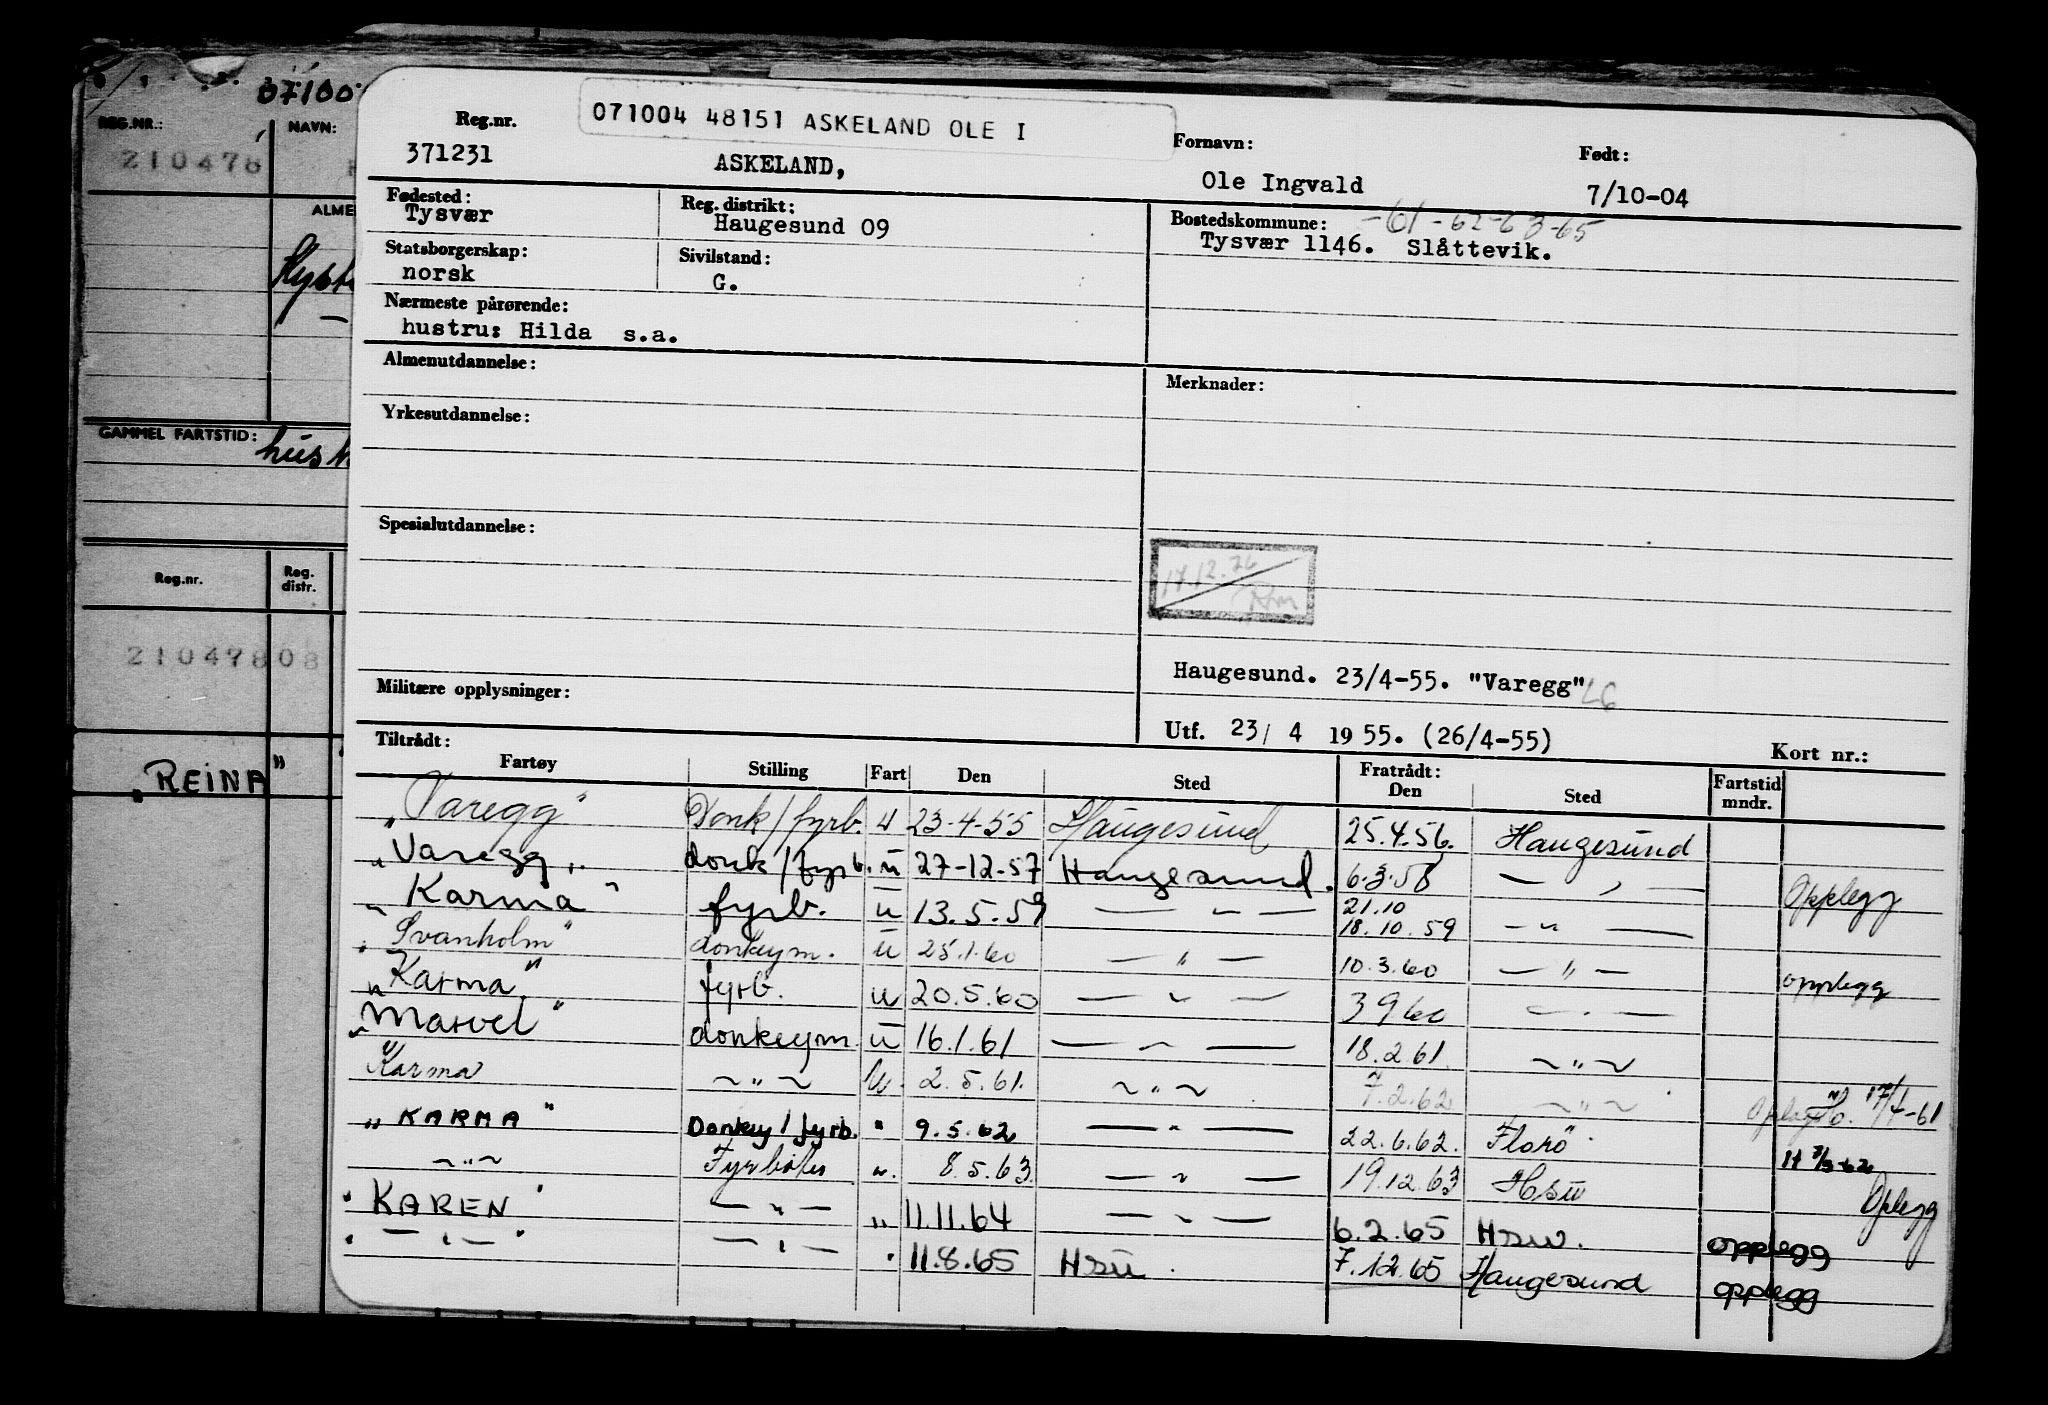 071004 48151 ASKELAND OLE I
Reg.nr. Fornavn: Født:
371231 ASKELAND, Ole Ingvald 7/10-04
Fødested: Reg. distrikt: Bostedskommune: -61-62-63-65
Tysvær Haugesund 09 Tysvær 1146. Slåttevik.
Statsborgerskap: Sivilstand:
norsk G.
Nærmeste pårørende:
hustru: Hilda s.a.
Almenutdannelse: Merknader:
Yrkesutdannelse:
Spesialutdannelse:
17.12.76
Haugesund. 23/4-55. "Varegg"
Militære opplysninger:
Utf. 23/ 4 1955. (26/4-55)
Tiltrådt: Fratrådt: Kort nr.:
Fartøy Stilling Fart Den Sted Den Sted Fartstid mndr.
"Varegg" Donk/fyrb. u 23-4-55 Haugesund 25.4.56. Haugesund
"Varegg" donk/fyrb. u 27-12-57 Haugesund. 6.3.58 — " — Opplegg
"Karma" fyrb. u 13.5.59 — " — 21.10 18.10.59 — " —
"Svanholm" donkeym. u 25.1.60 — " — 10.3.60 — " — opplegg
"Karma" fyrb. u 20.5.60 — " — 3 9 60 — " —
"Marvel" donkeym. u 16.1.61 — " — 18.2.61. ~ " ~
Karma ~ " ~ u. 2.5.61. ~ " ~ 7.2.62 ~ " ~ 17/4-61
"KARMA" Donkey/fyrb. " 9.5.62 — " — 22.6.62. Florö
~ " ~ Fyrbøter ". 8.5.63. — " — 19.12.63 Hsu Oplegg
"KAREN" — " — " 11.11.64 — " — 6.2.65 Hsu. opplegg
" — " — " — " — " 11.8.65 Hsu. 7.12.65 Haugesund opplegg
07100
REG.NR.: NAVN:
210478
ALME
GAMMEL FARTSTID:
Reg.nr. Reg. distr.
21047808
"REINA"